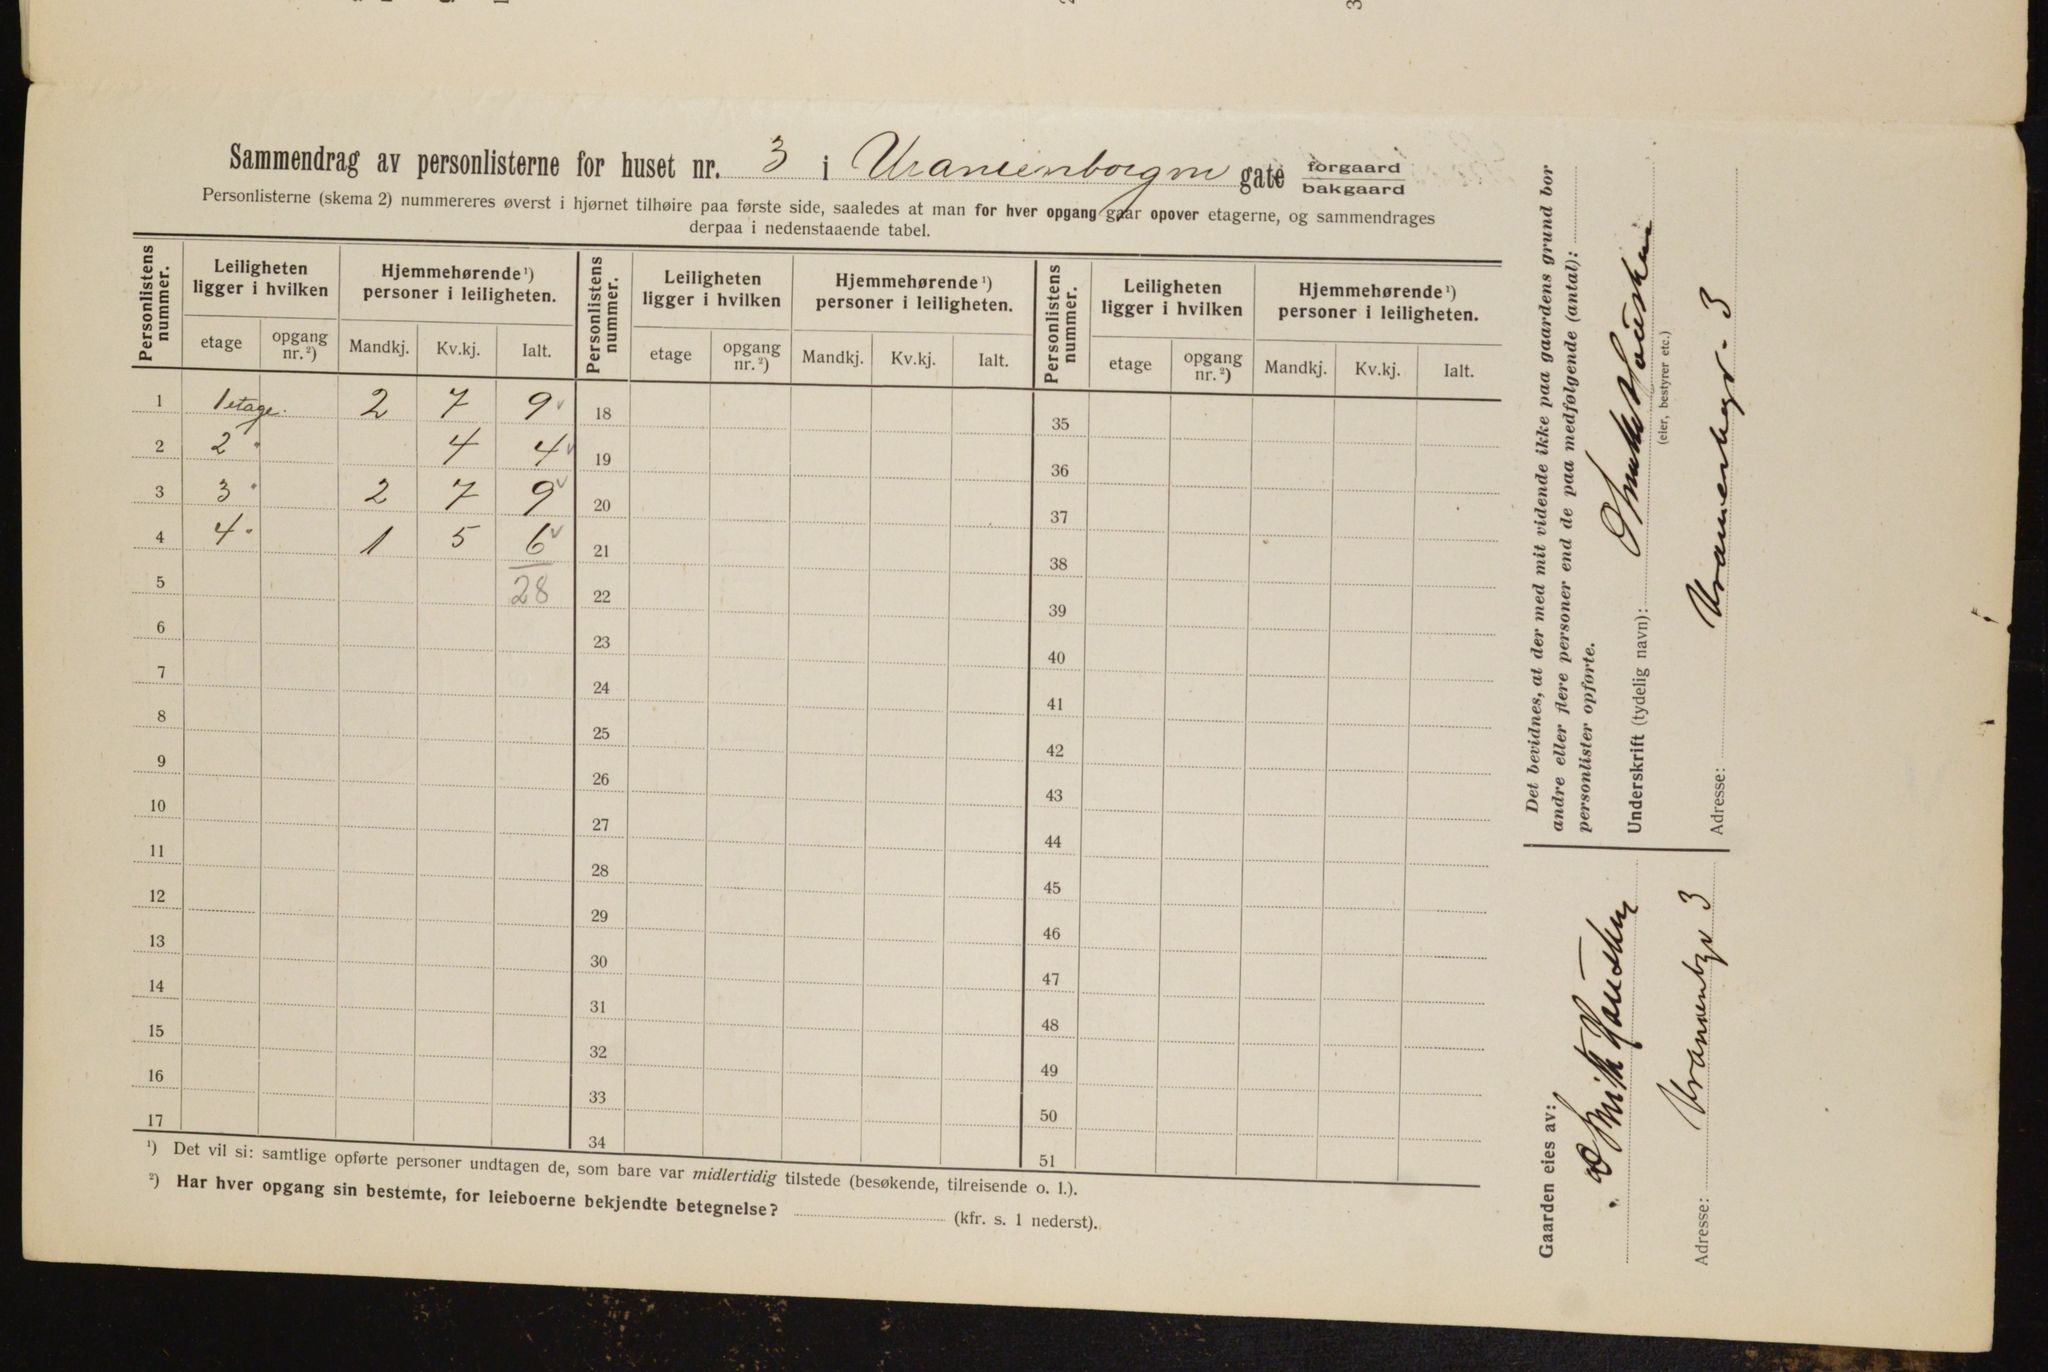 Sammendrag av personlisterne for huset nr. 3 i Uranienborgvn gate forgaard
bakgaard
Personlisterne (skema 2) nummereres øverst i hjørnet tilhøire paa første side, saaledes at man for hver opgang gaar opover etagerne, og sammendrages
derpaa i nedenstaaende tabel.
Personlistens nummer. Leiligheten ligger i hvilken Hjemmehørende ¹) personer i leiligheten. Personlistens nummer. Leiligheten ligger i hvilken Hjemmehørende ¹) personer i leiligheten. Personlistens nummer. Leiligheten ligger i hvilken Hjemmehørende ¹) personer i leiligheten.
etage opgang nr. ²) Mandkj. Kv.kj. Ialt. etage opgang nr. ²) Mandkj. Kv.kj. Ialt. etage opgang nr. ²) Mandkj. Kv.kj. Ialt.
1 1 etage. 2 7 9 18 35
2 2 " 4 4 19 36
3 3 " 2 7 9 20 37
4 4 " 1 5 6 21 38
5 28 22 39
6 23 40
7 24 41
8 25 42
9 26 43
10 27 44
11 28 45
12 29 46
13 30 47
14 31 48
15 32 49
16 33 50
17 34 51
¹) Det vil si: samtlige opførte personer undtagen de, som bare var midlertidig tilstede (besøkende, tilreisende o. l.).
²) Har hver opgang sin bestemte, for leieboerne bekjendte betegnelse? (kfr. s. 1 nederst).
Det bevidnes, at der med mit vidende ikke paa gaardens grund bor
andre eller flere personer end de paa medfølgende (antal):
personlister opførte.
Underskrift (tydelig navn):
(eier, bestyrer etc.)
Adresse: Uranienborgv. 3
Gaarden eies av:
Adresse: Uranienbgv 3